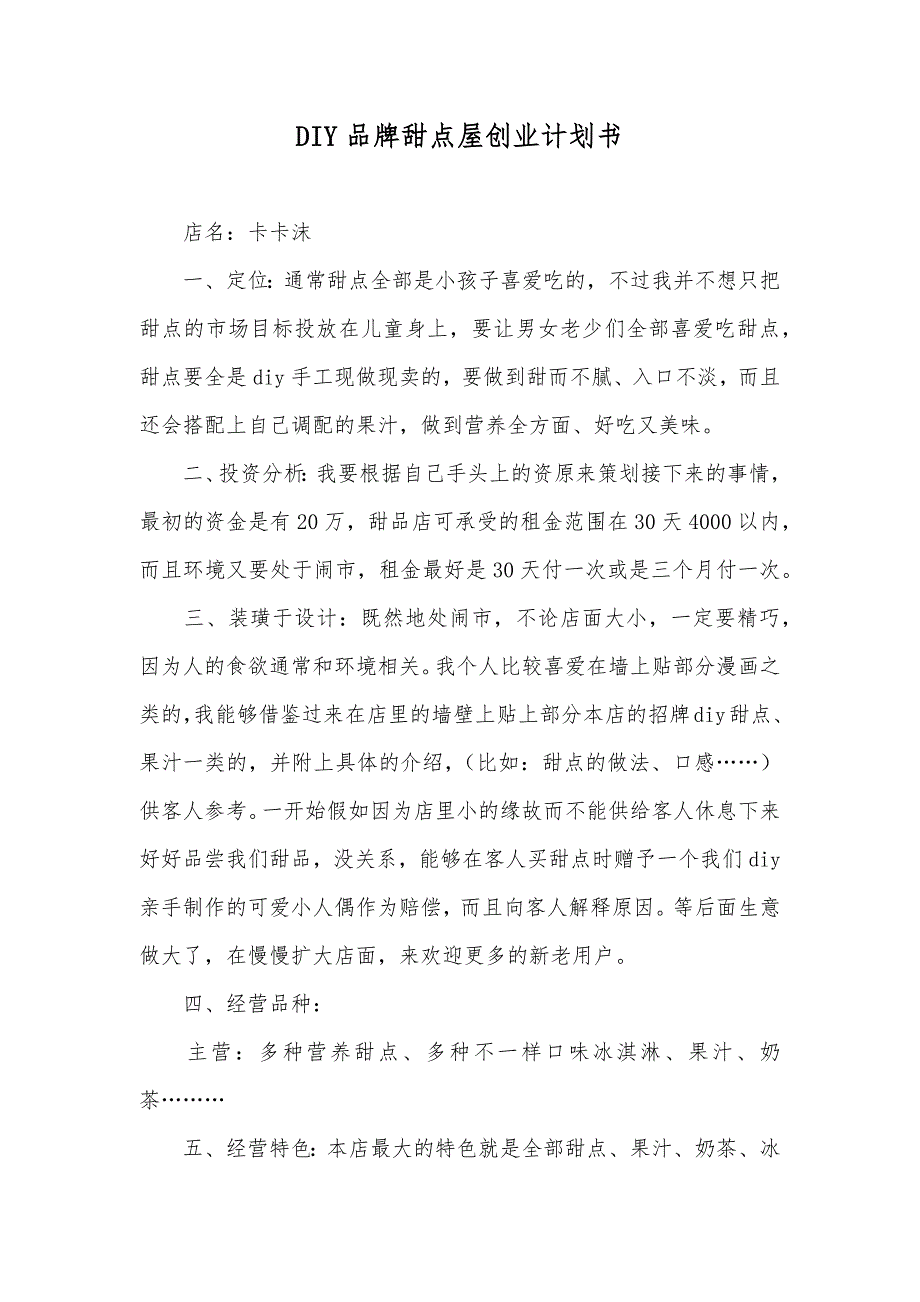 DIY品牌甜点屋创业计划书
店名：卡卡沫
一、定位：通常甜点全部是小孩子喜爱吃的，不过我并不想只把
甜点的市场目标投放在儿童身上，要让男女老少们全部喜爱吃甜点，
甜点要全是diy手工现做现卖的，要做到甜而不腻、入口不淡，而且
还会搭配上自己调配的果汁，做到营养全方面、好吃又美味。
二、投资分析：我要根据自己手头上的资原来策划接下来的事情，
最初的资金是有20万，甜品店可承受的租金范围在30天4000以内，
而且环境又要处于闹市，租金最好是30天付一次或是三个月付一次。
三、装璜于设计：既然地处闹市，不论店面大小，一定要精巧，
因为人的食欲通常和环境相关。我个人比较喜爱在墙上贴部分漫画之
类的，我能够借鉴过来在店里的墙壁上贴上部分本店的招牌diy甜点、
果汁一类的，并附上具体的介绍，（比如：甜点的做法、口感……）
供客人参考。一开始假如因为店里小的缘故而不能供给客人休息下来
好好品尝我们甜品，没关系，能够在客人买甜点时赠予一个我们diy
亲手制作的可爱小人偶作为赔偿，而且向客人解释原因。等后面生意
做大了，在慢慢扩大店面，来欢迎更多的新老用户。
四、经营品种：
主营：多种营养甜点、多种不一样口味冰淇淋、果汁、奶
茶………
五、经营特色：本店最大的特色就是全部甜点、果汁、奶茶、冰